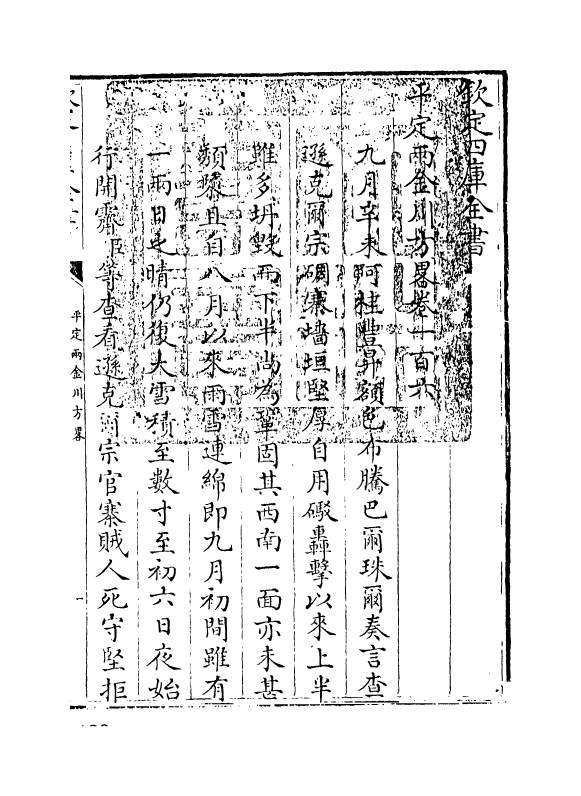 欽定四庫全書
平定兩金川方畧卷一百六
九月辛未阿桂豐昇額色布騰巴爾珠爾奏言查
遜克爾宗碉寨墻垣堅厚自用礮轟擊以來上半
雖多坍毀而下半尚為鞏固其西南一面亦未甚
頽壞且自八月以來雨雪連綿即九月初間雖有
一兩日之晴仍復大雪積至數寸至初六日夜始
行開霽臣等查看遜克爾宗官寨賊人死守堅拒
平定兩金川方畧
一